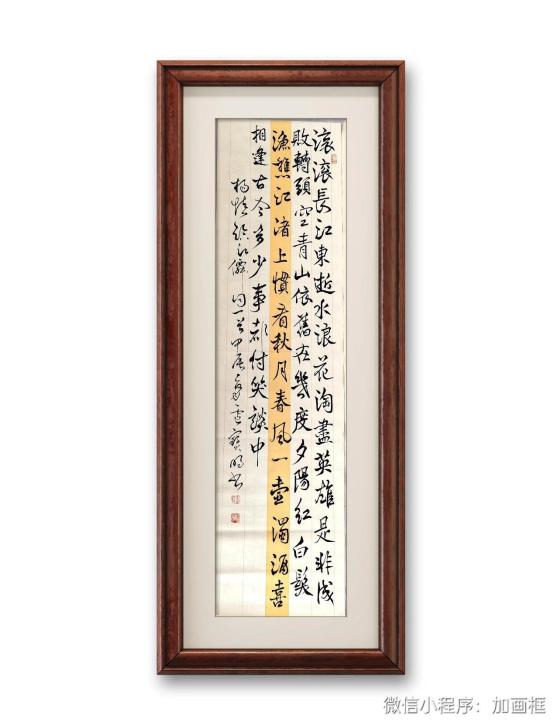 滚滚長江東逝水浪花淘盡英雄是非成
敗轉頭空青山依舊在幾度夕陽紅白髮
漁樵江渚上慣看秋月春風一壺濁酒喜
相逢古今多少事都付笑談中
楊慎臨江僊詞一首甲辰寶明書
微信小程序：加画框